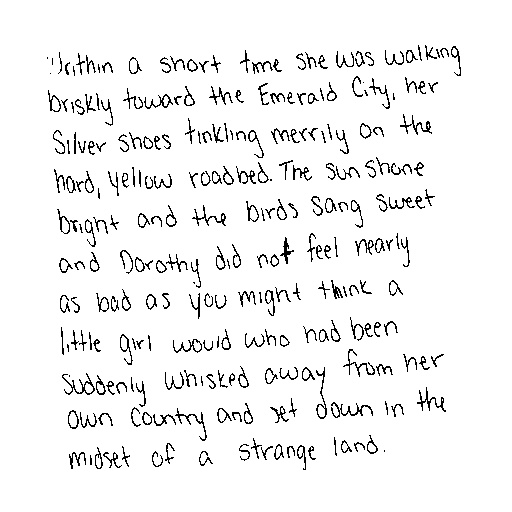 Within a short time she was walking
briskly toward the Emerald City, her
Silver Shoes tinkling merrily on the
hard, yellow roadbed. The sun shone
bright and the birds sang sweet
and Dorothy did not feel nearly
as bad as you might think a
little girl would who had been
suddenly whisked away from her
own country and set down in the
midset of a strange land.